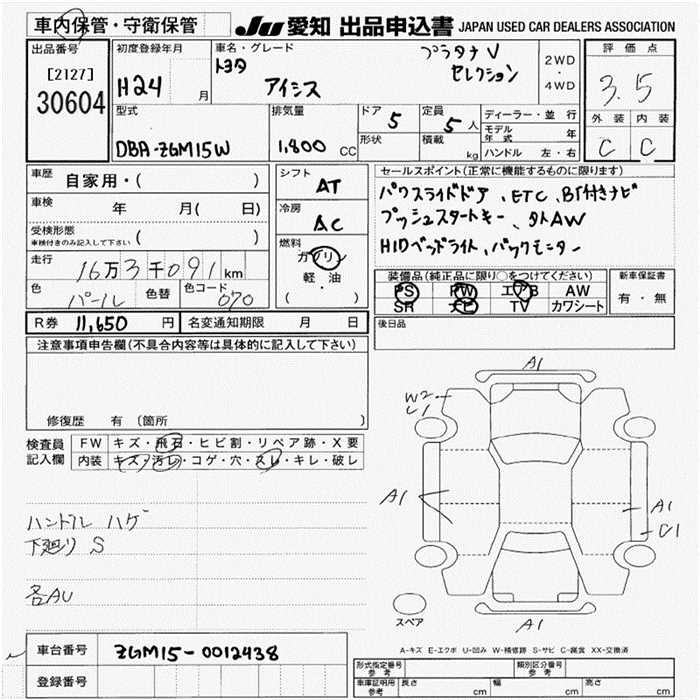 車内保管・守衛保管
JU 愛知 出品申込書 JAPAN USED CAR DEALERS ASSOCIATION
出品番号
[2127]
30604
初度登録年月
H24 月
車名・グレード
トヨタ アイシス
プラタナ V
セレクション
2WD
・
4WD
評価点
3.5
外装 内装
C C
型式
DBA-ZGM15W
排気量
1,800 CC
ドア 5
定員 5 人
形状
積載 kg
ディーラー・並行
モデル年式 年
ハンドル 左・右
車歴 自家用・( )
車検 年 月( 日)
受検形態
車検付きのみ記入して下さい ( )
走行 16万3千091km
色 パール 色替 色コード 070
シフト
AT
冷房
AC
燃料
ガソリン
軽・油
( )
セールスポイント(正常に機能するものに限ります)
パワスライドドア、ETC、BT付きナビ
プッシュスタートキー、タトAW
HIDヘッドライト、バックモニター
装備品(純正品に限り○をつけてください)
PS PW エアB AW
SR ナビ TV カワシート
新車保証書
有・無
後日品
R券 11,650 円 名変通知期限 月 日
注意事項申告欄(不具合内容等は具体的に記入して下さい)
修復歴 有 〔箇所 〕
検査員
記入欄
FW キズ・飛石・ヒビ割・リペア跡・X要
内装 キズ・汚レ・コゲ・穴・スレ・キレ・破レ
ハンドル ハゲ
下廻り S
各AU
A1
W2
U1
A1
A1
C1
A1
スペア
A-キズ E-エクボ U-凹み W-補修跡 S-サビ C-腐食 XX-交換済
車台番号 ZGM15-0012438
登録番号
形式指定番号
参考
類別区分番号
参考
車庫証明用
参考
長さ cm 幅 cm 高さ cm